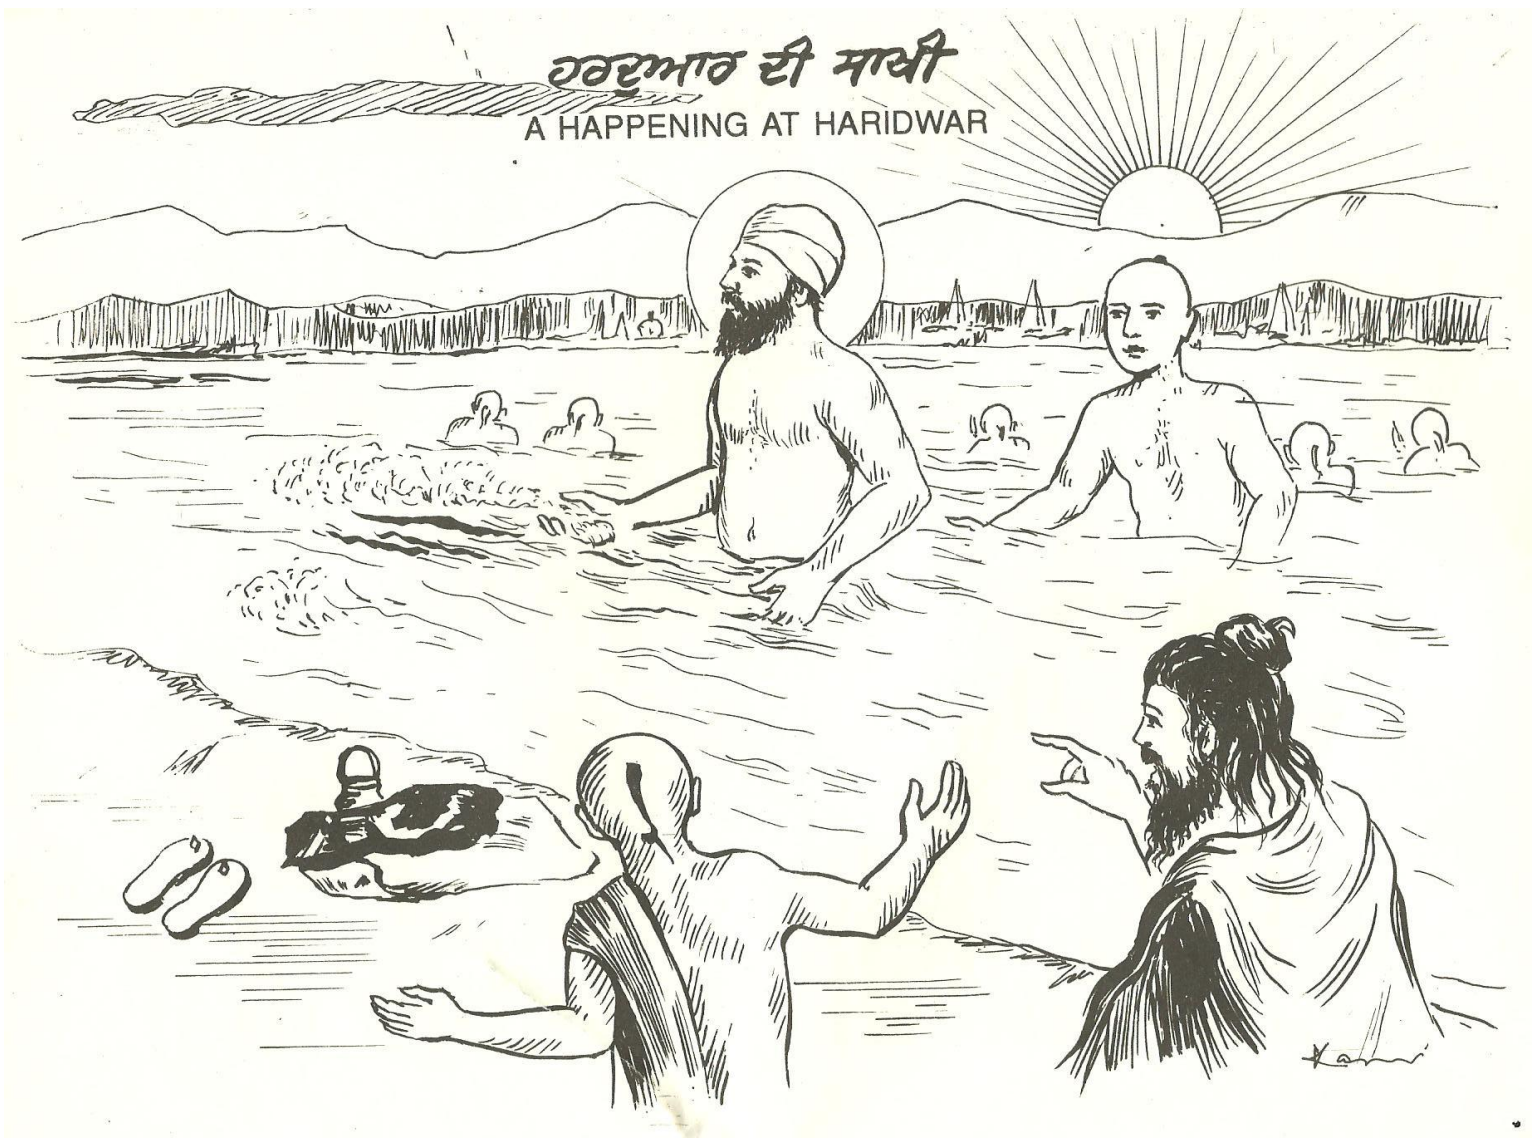 ਹਰਦੁਆਰ ਦੀ ਸਾਖੀ
A HAPPENING AT HARIDWAR